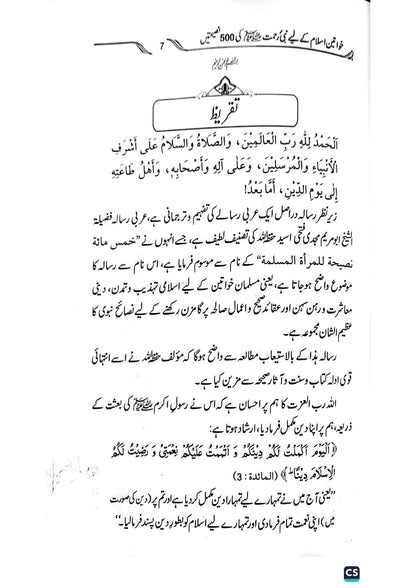 خواتین اسلام کے لیے نبی رحمت ﷺ کی 500 نصیحتیں
7
تقریظ
اَلْحَمْدُ لِلّٰهِ رَبِّ الْعَالَمِيْنَ، وَالصَّلَاةُ وَالسَّلَامُ عَلَى أَشْرَفِ
الْأَنْبِيَاءِ وَالْمُرْسَلِيْنَ، وَعَلَى آلِهِ وَأَصْحَابِهِ، وَأَهْلِ طَاعَتِهِ
إِلَى يَوْمِ الدِّيْنِ، أَمَّا بَعْدُ!
زیر نظر رسالہ دراصل ایک عربی رسالے کی تفہیم و ترجمانی ہے، عربی رسالہ فضیلۃ
الشیخ ابو مریم مجدی فتحی السید حفظہ اللہ کی تصنیف لطیف ہے، جسے انہوں نے ”خمس مائة
نصيحة للمرأة المسلمة“ کے نام سے موسوم فرمایا ہے، اس نام سے رسالہ کا
موضوع واضح ہو جاتا ہے، یعنی مسلمان خواتین کے لیے اسلامی تہذیب و تمدن، دینی
معاشرت و رہن سہن اور عقائد صحیح و اعمال صالحہ پر گامزن رکھنے کے لیے نصائح نبوی کا
عظیم الشان مجموعہ ہے۔
رسالہ ہذا کے بالاستیعاب مطالعہ سے واضح ہوگا کہ مؤلف حفظہ اللہ نے اسے انتہائی
قوی ادلہ کتاب و سنت و آثار صحیحہ سے مزین کیا ہے۔
اللہ رب العزت کا ہم پر احسان ہے کہ اس نے رسول اکرم ﷺ کی بعثت کے
ذریعہ، ہم پر اپنا دین مکمل فرما دیا، ارشاد ہوتا ہے:
﴿اَلْيَوْمَ اَكْمَلْتُ لَكُمْ دِيْنَكُمْ وَ اَتْمَمْتُ عَلَيْكُمْ نِعْمَتِيْ وَ رَضِيْتُ لَكُمُ
الْاِسْلَامَ دِيْنًا ؕ﴾ (المائدہ : 3)
”یعنی آج میں نے تمہارے لیے تمہارا دین مکمل کر دیا ہے اور تم پر (دین کی صورت
میں) اپنی نعمت تمام فرما دی اور تمہارے لیے اسلام کو بطور دین پسند فرما لیا۔“
CS